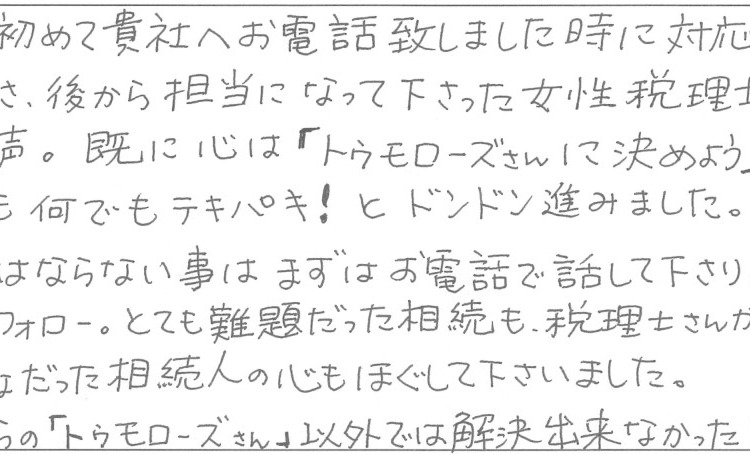 初めて貴社へお電話致しました時に対応
さ、後から担当になって下さった女性税理士
声。既に心は「トゥモローズさんに決めよう」
も何でもテキパキ!とドンドン進みました。
はならない事はまずはお電話で話して下さり
フォロー。とても難題だった相続も、税理士さんが
だった相続人の心もほぐして下さいました。
らの「トゥモローズさん」以外では解決出来なかった